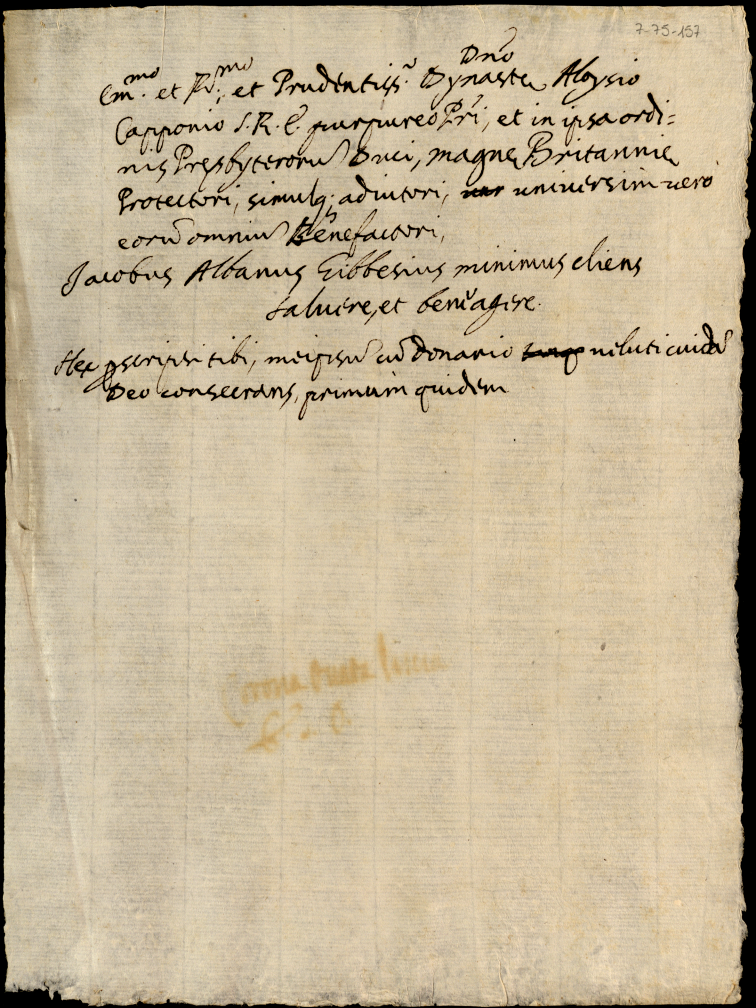 7-75-157
Dno
Em.mo et R.mo, et Prudentiss.o Dynastę Aloysio
Capponio S. R. E. purpureo Pri, et in ipsa ordi=
nis Presbyterorũ Duci, magnę Britannię
Protectori, simulq; adiutori, universim vero
eorũ omniũ Benefactori,
Jacobus Albanus Gibbesius minimus cliens
salvere, et benè agere.
Hęc pscripsi tibi, meipsũ cũ donario veluti cuidã
Deo consecrans, primùm quidem